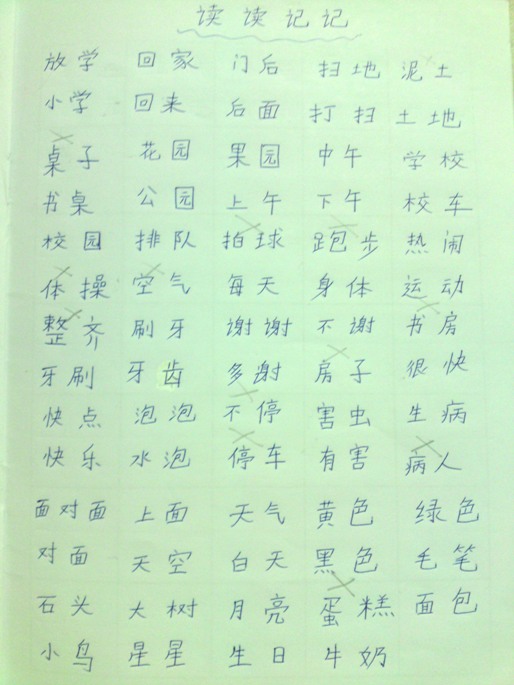 读读记记
放学 回家 门后 扫地 泥土
小学 回来 后面 打扫 土地
桌子 花园 果园 中午 学校
书桌 公园 上午 下午 校车
校园 排队 拍球 跑步 热闹
体操 空气 每天 身体 运动
整齐 刷牙 谢谢 不谢 书房
牙刷 牙齿 多谢 房子 很快
快点 泡泡 不停 害虫 生病
快乐 水泡 停车 有害 病人
面对面 上面 天气 黄色 绿色
对面 天空 白天 黑色 毛笔
石头 大树 月亮 蛋糕 面包
小鸟 星星 生日 牛奶